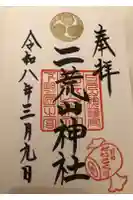 奉拝
二荒山神社
令和八年三月九日